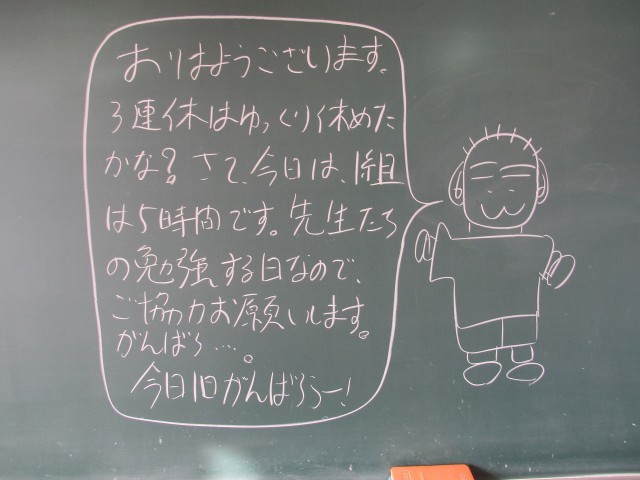 おはようございます。
3連休はゆっくり休めた
かな？さて、今日は、1組
は5時間です。先生たち
の勉強する日なので、
ご協力お願いします。
がんばろ…。
今日1日がんばろうー！